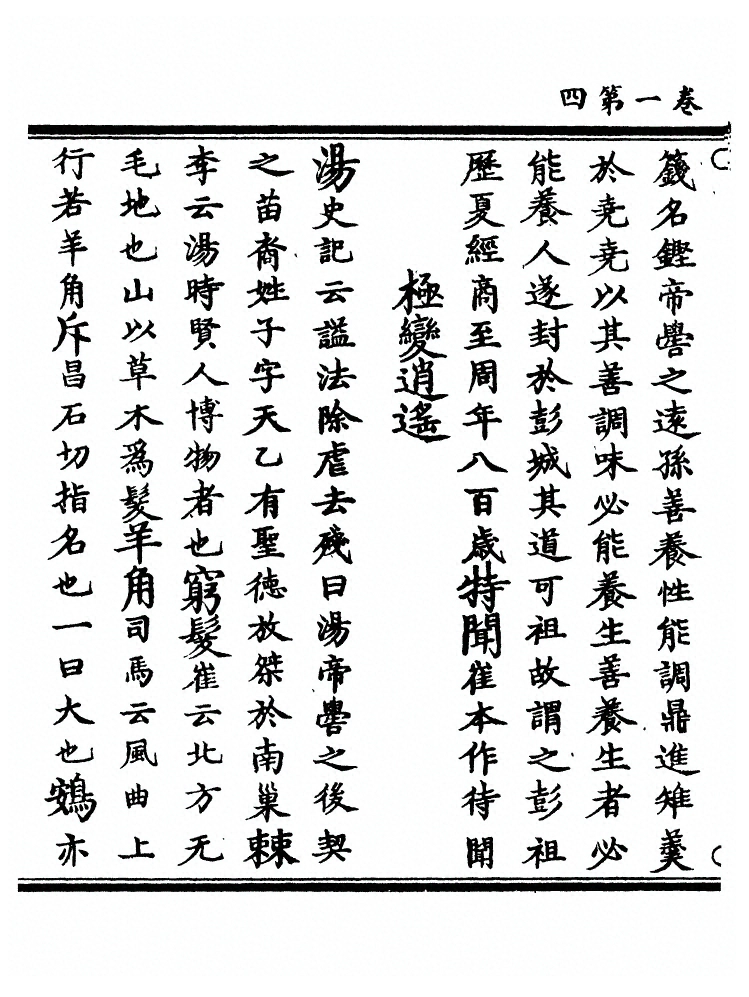 卷一第四
籛名鏗帝嚳之遠孫善養性能調鼎進雉羹
於堯堯以其善調味必能養生善養生者必
能養人遂封於彭城其道可祖故謂之彭祖
歷夏經商至周年八百歲特聞崔本作待聞
極變逍遙
湯史記云諡法除虐去殘曰湯帝嚳之後契
之苗裔姓子字天乙有聖德放桀於南巢棘
李云湯時賢人博物者也窮髮崔云北方无
毛地也山以草木為髮羊角司馬云風曲上
行若羊角斥昌石切指名也一曰大也鴳亦